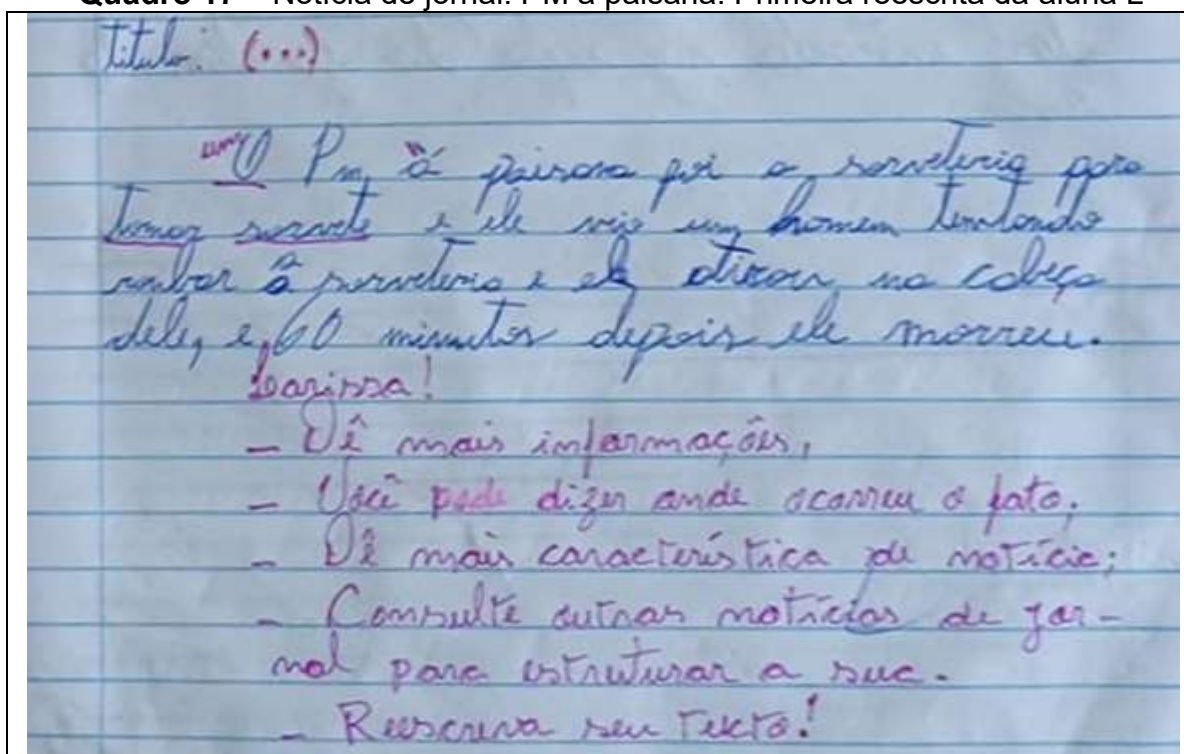 Quadro 17 – Notícia de jornal: PM à paisana. Primeira reescrita da aluna L
Titulo: (...)
um O Pm, "à paisana foi a sorveteria para
tomar sorvete e ele viu um homem tentando
roubar à sorveteria e ele atirou na cabeça
dele, e, 60 minutos depois ele morreu.
Larissa!
– Dê mais informações,
– Você pode dizer onde ocorreu o fato;
– Dê mais característica de notícia;
– Consulte outras notícias de jor-
nal para estruturar a sua.
– Reescreva seu texto!